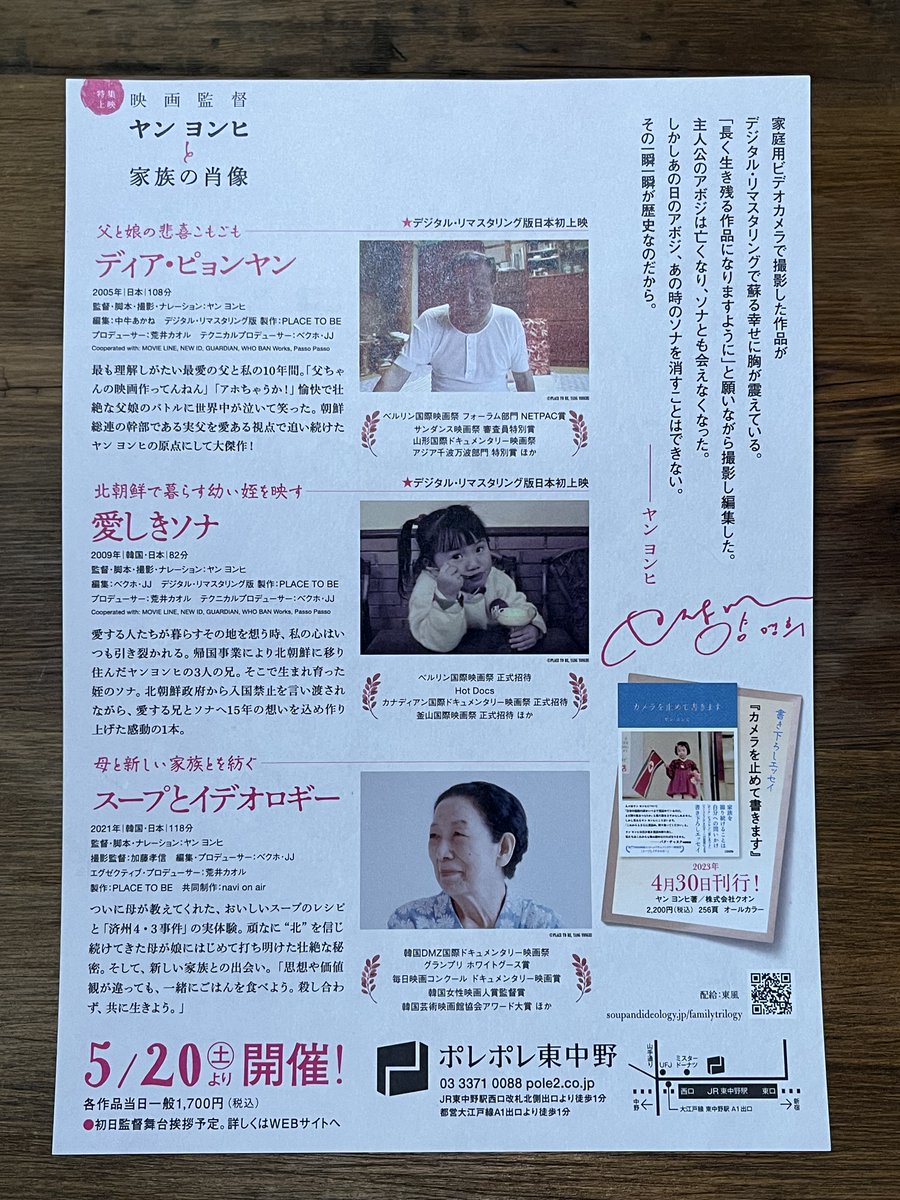 特集
上映
映画監督
ヤン ヨンヒ
と
家族の肖像
家庭用ビデオカメラで撮影した作品が
デジタル・リマスタリングで蘇る幸せに胸が震えている。
「長く生き残る作品になりますように」と願いながら撮影し編集した。
主人公のアボジは亡くなり、ソナとも会えなくなった。
しかしあの日のアボジ、あの時のソナを消すことはできない。
その一瞬一瞬が歴史なのだから。
ヤン ヨンヒ
양영희
父と娘の悲喜こもごも
★デジタル・リマスタリング版日本初上映
ディア・ピョンヤン
2005年|日本|108分
監督・脚本・撮影・ナレーション:ヤン ヨンヒ
編集:中牛あかね デジタル・リマスタリング版 製作:PLACE TO BE
プロデューサー:荒井カオル テクニカルプロデューサー:ベクホ・JJ
Cooperated with: MOVIE LINE, NEW ID, GUARDIAN, WHO BAN Works, Passo Passo
最も理解しがたい最愛の父と私の10年間。「父ちゃ
んの映画作ってんねん」「アホちゃうか!」愉快で壮
絶な父娘のバトルに世界中が泣いて笑った。朝鮮
総連の幹部である実父を愛ある視点で追い続けた
ヤン ヨンヒの原点にして大傑作!
©PLACE TO BE, YANG YONGHI
ベルリン国際映画祭 フォーラム部門 NETPAC賞
サンダンス映画祭 審査員特別賞
山形国際ドキュメンタリー映画祭
アジア千波万波部門 特別賞 ほか
北朝鮮で暮らす幼い姪を映す
★デジタル・リマスタリング版日本初上映
愛しきソナ
2009年|韓国・日本|82分
監督・脚本・撮影・ナレーション:ヤン ヨンヒ
編集:ベクホ・JJ デジタル・リマスタリング版 製作:PLACE TO BE
プロデューサー:荒井カオル テクニカルプロデューサー:ベクホ・JJ
Cooperated with: MOVIE LINE, NEW ID, GUARDIAN, WHO BAN Works, Passo Passo
愛する人たちが暮らすその地を想う時、私の心はい
つも引き裂かれる。帰国事業により北朝鮮に移り
住んだヤンヨンヒの3人の兄。そこで生まれ育った
姪のソナ。北朝鮮政府から入国禁止を言い渡され
ながら、愛する兄とソナへ15年の想いを込め作り
上げた感動の1本。
©PLACE TO BE, YANG YONGHI
ベルリン国際映画祭 正式招待
Hot Docs
カナディアン国際ドキュメンタリー映画祭 正式招待
釜山国際映画祭 正式招待 ほか
母と新しい家族とを紡ぐ
スープとイデオロギー
2021年|韓国・日本|118分
監督・脚本・ナレーション:ヤン ヨンヒ
撮影監督:加藤孝信 編集・プロデューサー:ベクホ・JJ
エグゼクティブ・プロデューサー:荒井カオル
製作:PLACE TO BE 共同制作:navi on air
ついに母が教えてくれた、おいしいスープのレシピ
と「済州4・3事件」の実体験。頑なに“北”を信じ
続けてきた母が娘にはじめて打ち明けた壮絶な秘
密。そして、新しい家族との出会い。「思想や価値
観が違っても、一緒にごはんを食べよう。殺し合わ
ず、共に生きよう。」
©PLACE TO BE, YANG YONGHI
韓国DMZ国際ドキュメンタリー映画祭
グランプリ ホワイトグース賞
毎日映画コンクール ドキュメンタリー映画賞
韓国女性映画人賞監督賞
韓国芸術映画館協会アワード大賞 ほか
書き下ろしエッセイ
『カメラを止めて書きます』
カメラを止めて書きます
家族を
撮り続けることは
自分への問いかけ
書き下ろしエッセイ
2023年
4月30日刊行!
ヤン ヨンヒ著/株式会社クオン
2,200円(税込) 256頁 オールカラー
配給:東風
soupandideology.jp/familytrilogy
5/20(土)より開催!
各作品当日一般1,700円(税込)
●初日監督舞台挨拶予定。詳しくはWEBサイトへ
ポレポレ東中野
03 3371 0088 pole2.co.jp
JR東中野駅西口改札北側出口より徒歩1分
都営大江戸線A1出口より徒歩1分
山手通り
UFJ
ミスター
ドーナツ
西口 JR東中野駅 東口
中野
新宿
大江戸線 東中野駅 A1出口